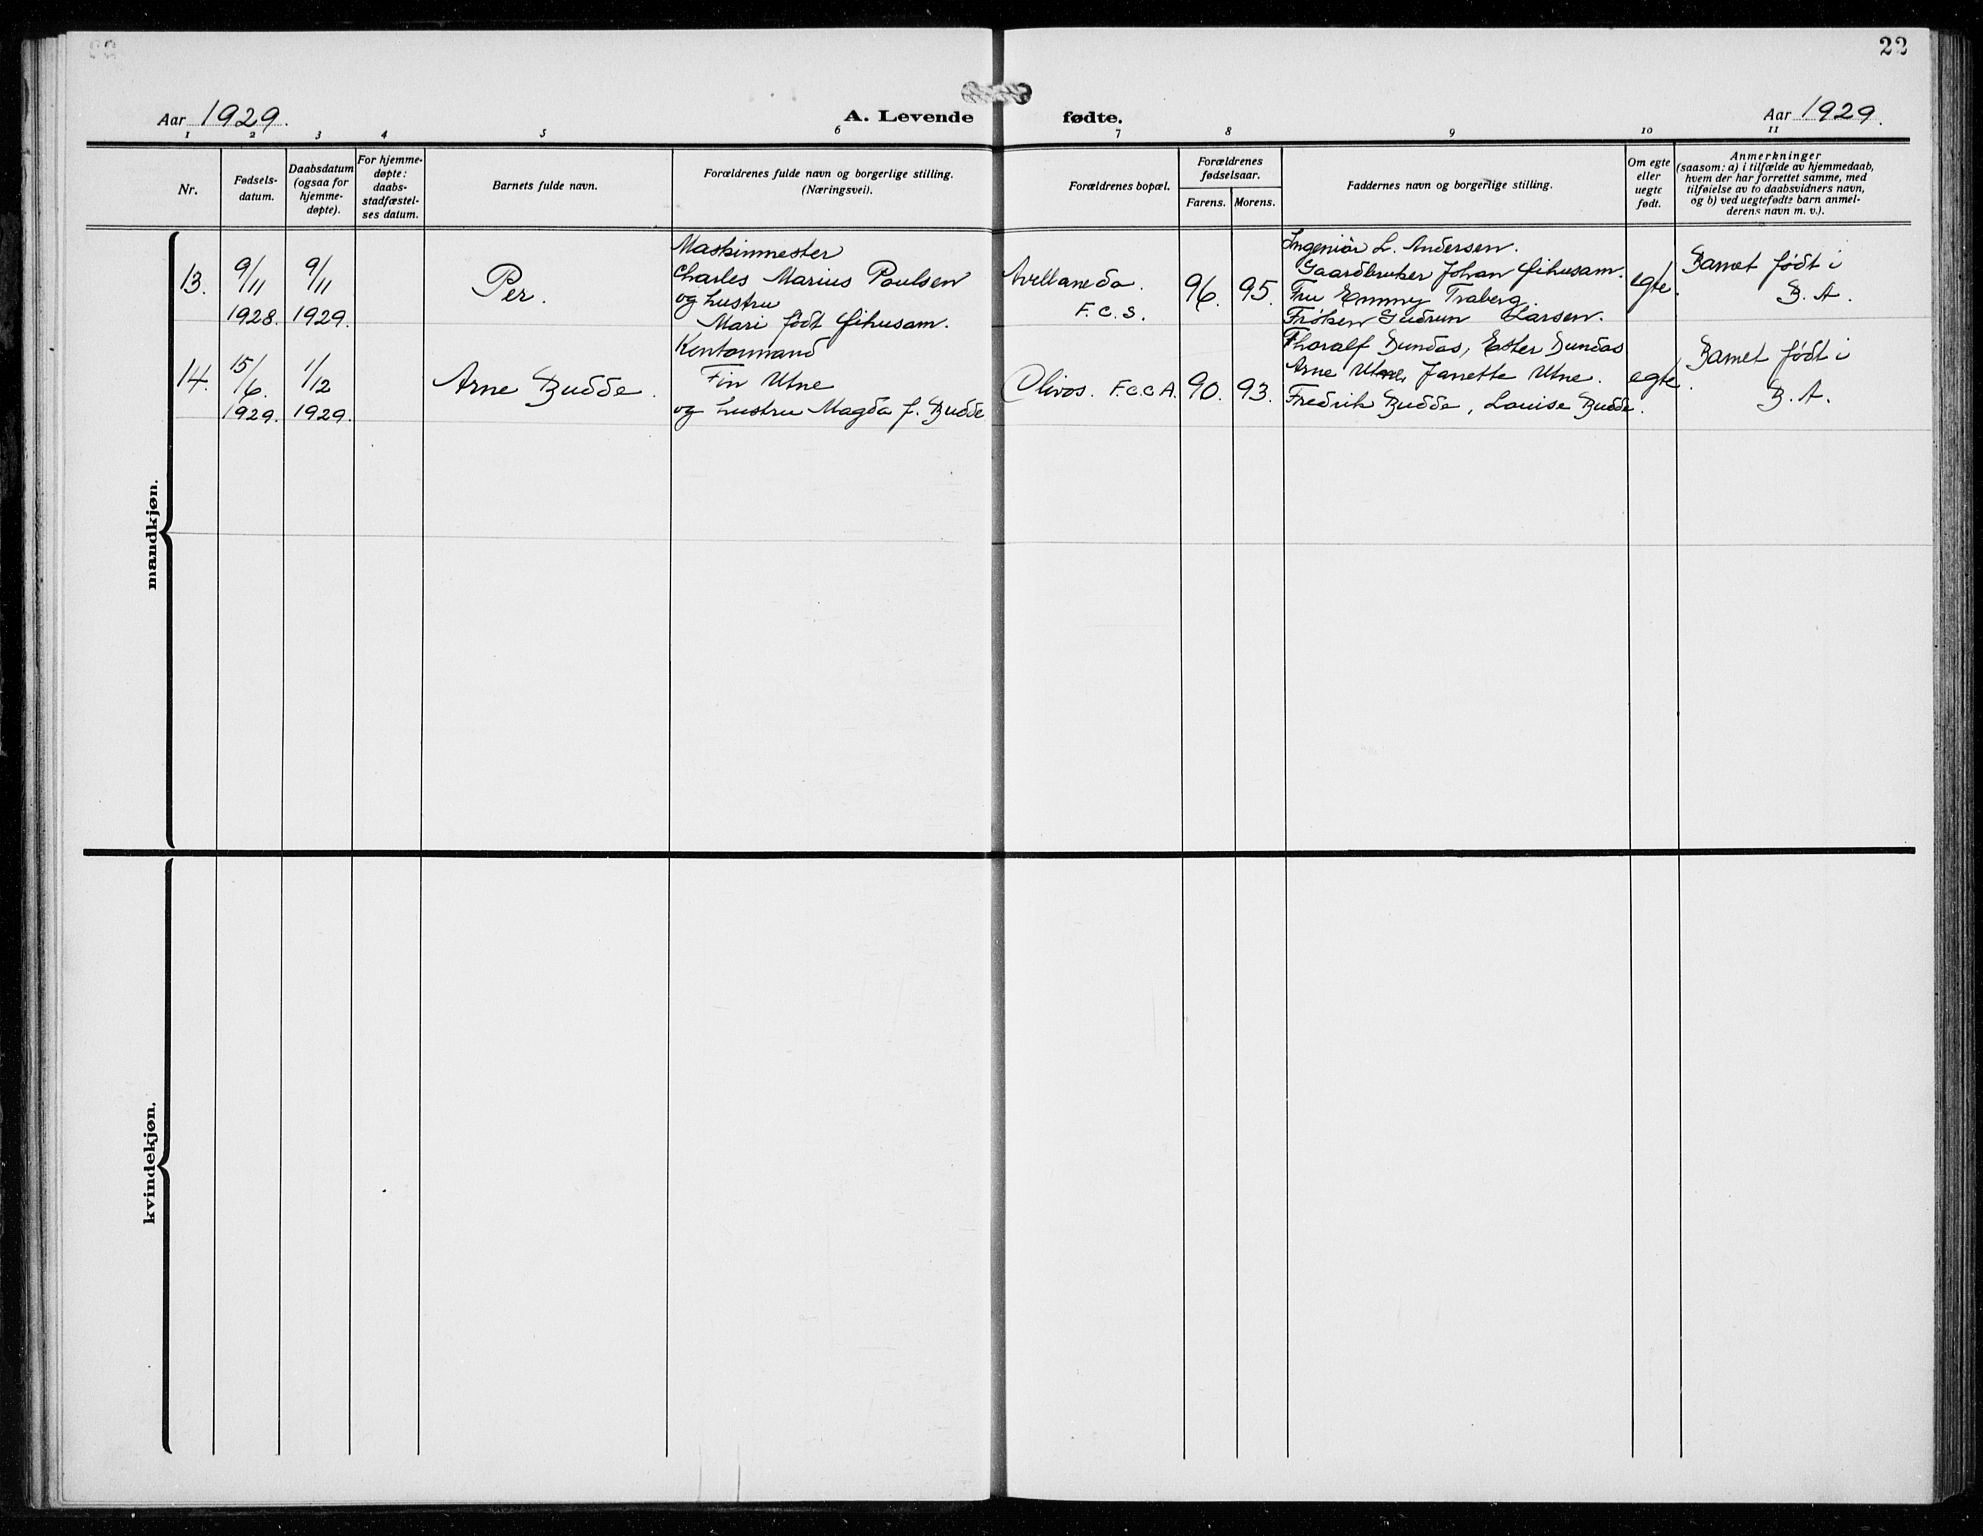 22
Aar 1929.
A. Levende fødte.
Aar 1929.
1 2 3 4 5 6 7 8 9 10 11
Nr.
Fødsels-
datum.
Daabsdatum
(ogsaa for
hjemme-
døpte).
For hjemme-
døpte:
daabs-
stadfæstel-
ses datum.
Barnets fulde navn.
Forældrenes fulde navn og borgerlige stilling.
(Næringsvei).
Forældrenes bopæl.
Forældrenes
fødselsaar.
Farens. Morens.
Faddernes navn og borgerlige stilling.
Om egte
eller
uegte
født.
Anmerkninger
(saasom: a) i tilfælde av hjemmedaab,
hvem der har forrettet samme, med
tilføielse av to daabsvidners navn,
og b) ved uegtefødte barn anmel-
derens navn m. v.).
mandkjøn.
13.
9/11
1928.
9/11
1929.
Per.
Maskinmester
Charles Marius Poulsen
og hustru
Mari født
Avellaneda.
F.C.S.
96.
95.
Ingeniør L. Andersen.
Gaardbruker Johan
Fru Emmy Traberg.
Frøken Gudrun Larsen.
egte.
Barnet født i
B. A.
14.
15/6
1929.
1/12
1929.
Arne Budde.
Kontormand
Fin Utne
og hustru Magda f. Budde
Olivos. F.C.C.A.
90.
93.
Thoralf Dundas, Ester Dundas
Arne Utne, Janette Utne.
Fredrik Budde, Louise Budde.
egte.
Barnet født i
B. A.
kvindekjøn.